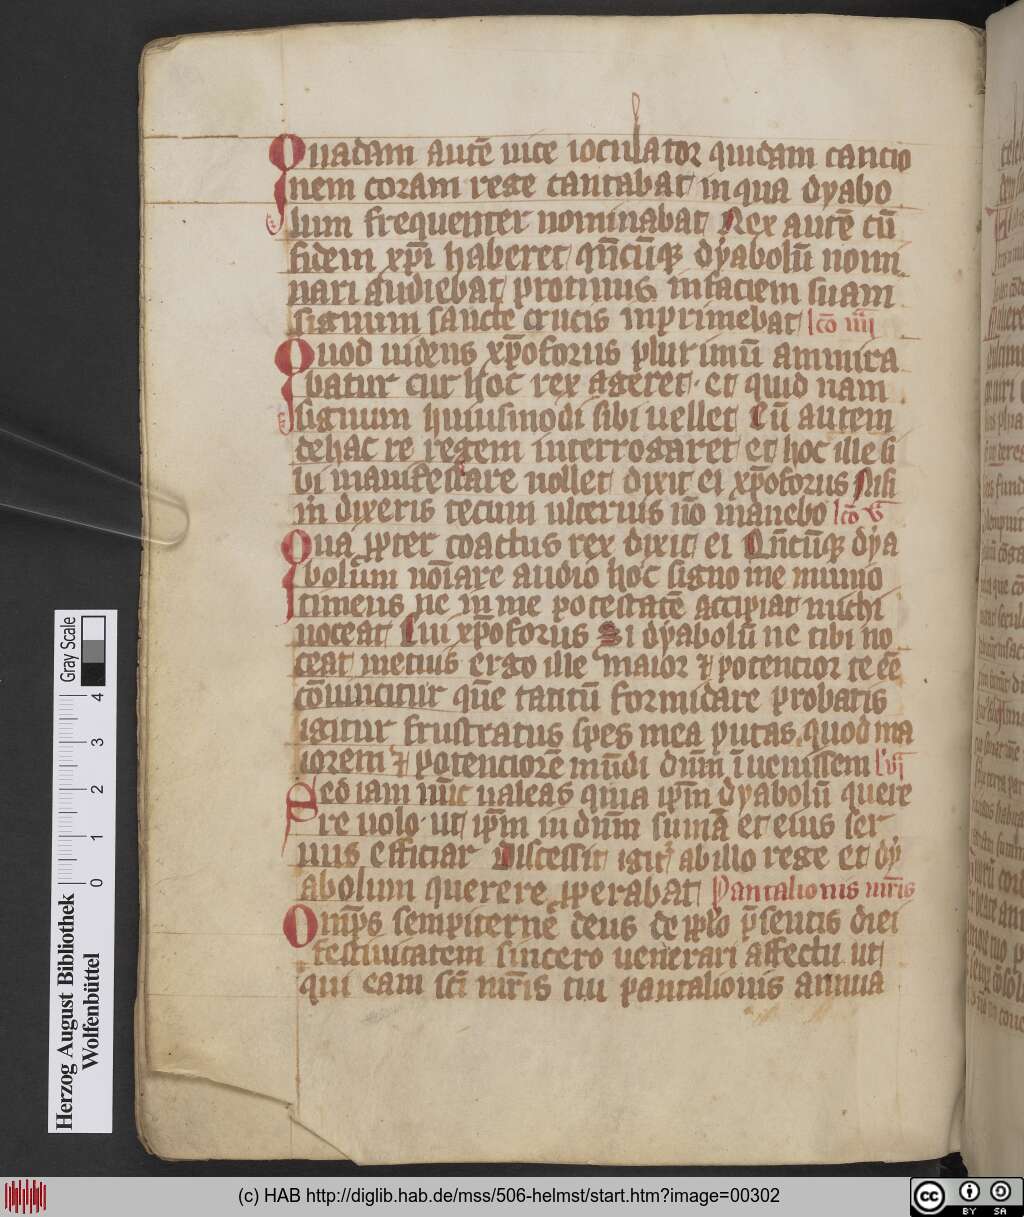 Quadam autē uice ioculator quidam cancio
nem coram rege cantabat in qua dyabo
lum frequenter nominabat Rex autē cū
fidem xp̄i haberet qn̄cūq dyabolū nomi
nari audiebat protinus in faciem suam
signum sancte crucis inprimebat lc̄o iiii
Quod uidens xp̄oforus plurimū ammira
batur cur hoc rex ageret et quid nam
signum huiusmodi sibi uellet Cū autem
de hac re regem interrogaret et hoc ille si
bi manifestare nollet dixit ei xp̄oforus Nisi
m̄ dixeris tecum ulterius nō manebo lc̄o v
Qua ꝓpter coactus rex dixit ei Qn̄cūq dya
bolum noīare audio hoc signo me munio
timens ne in me potestatē accipiat michi
noceat Cui xp̄oforus Si dyabolū ne tibi no
ceat metuis ergo ille maior ⁊ potencior te eē
cōuincitur quē tantū formidare probatis
igitur frustratus spes mea putas quod ma
iorem ⁊ potenciorē mūdi dn̄m īuenissem l vi
Sed iam nūc ualeas quia ip̄m dyabolū quere
re uolo ut ip̄m in dn̄m sumā et eius ser
uus efficiar Discessit igit᷑ ab illo rege et dy
abolum querere ꝓperabat Pantalionis mr̄is
Om̄ps sempiternē deus de ꝓplo p̄sentis diei
festiuitatem sincero uenerari affectu ut
qui eam sc̄i mr̄is tui pantalionis annua
Herzog August Bibliothek
Wolfenbüttel
Gray Scale
4
3
2
1
0
(c) HAB http://diglib.hab.de/mss/506-helmst/start.htm?image=00302
cc BY SA